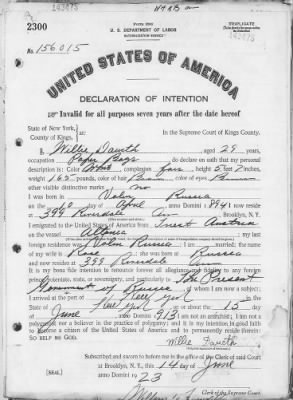 2300
U. S. DEPARTMENT OF LABOR
NATURALIZATION SERVICE
TRIPLICATE
No. 156015
UNITED STATES OF AMERICA
DECLARATION OF INTENTION
Invalid for all purposes seven years after the date hereof
State of New York,
County of Kings, ss:
In the Supreme Court of Kings County.
I, Willie Dawith aged 29 years,
occupation Paper Bags do declare on oath that my personal
description is: Color White complexion fair height 5 feet 7 inches,
weight 165 pounds, color of hair Brown color of eyes Brown
other visible distinctive marks no
I was born in Russia
on the 10 day of April anno Domini 1894 now reside
at 399 Riverdale Ave Brooklyn, N.Y.
I emigrated to the United States of America from Triest Austria
on the vessel my last
foreign residence was Russia I am married; the name
of my wife is Rose she was born in Russia
and now resides at 399 Riverdale Ave
It is my bona fide intention to renounce forever all allegiance and fidelity to any foreign
prince, potentate, state, or sovereignty, and particularly to The Present
Government of Russia of whom I am now a subject
I arrived at the port of New York in the
State of New York on or about the 15 day
of June anno Domini 1913 I am not an anarchist; I am not a
polygamist nor a believer in the practice of polygamy; and it is my intention in good faith
to become a citizen of the United States of America and to permanently reside therein:
SO HELP ME GOD.
Willie Dawith
Subscribed and sworn to before me in the office of the Clerk of said Court
at Brooklyn, N.Y., this 14 day of June
[SEAL]
anno Domini 1923
Clerk of the Supreme Court.